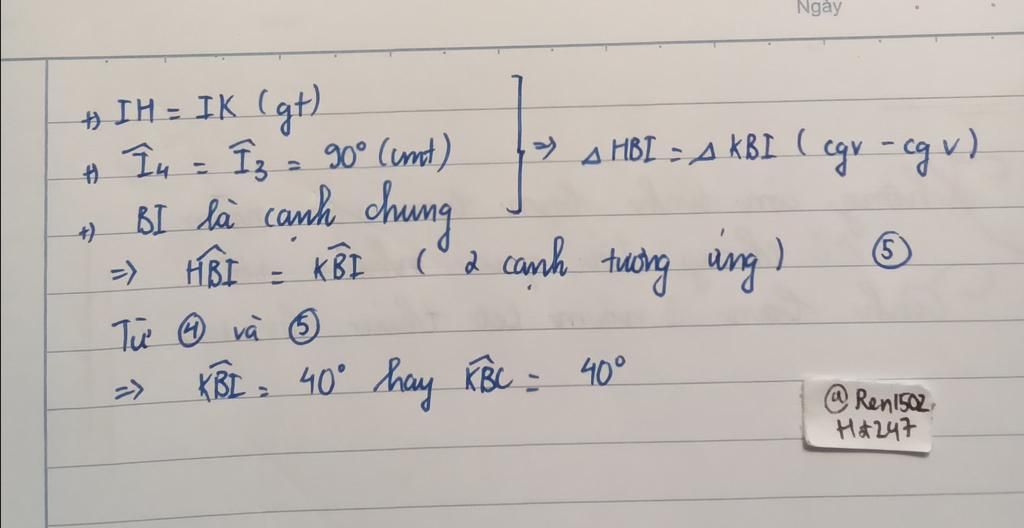 Ngày
+) IH = IK (gt)
+) Î₄ = Î₃ = 90° (cmt)
+) BI là cạnh chung
=> △HBI = △KBI (cgv - cgv)
=> HB̂I = KB̂I (2 cạnh tương ứng) ⑤
Từ ④ và ⑤
=> KB̂I = 40° hay KB̂C = 40°
@Ren1502
H*247